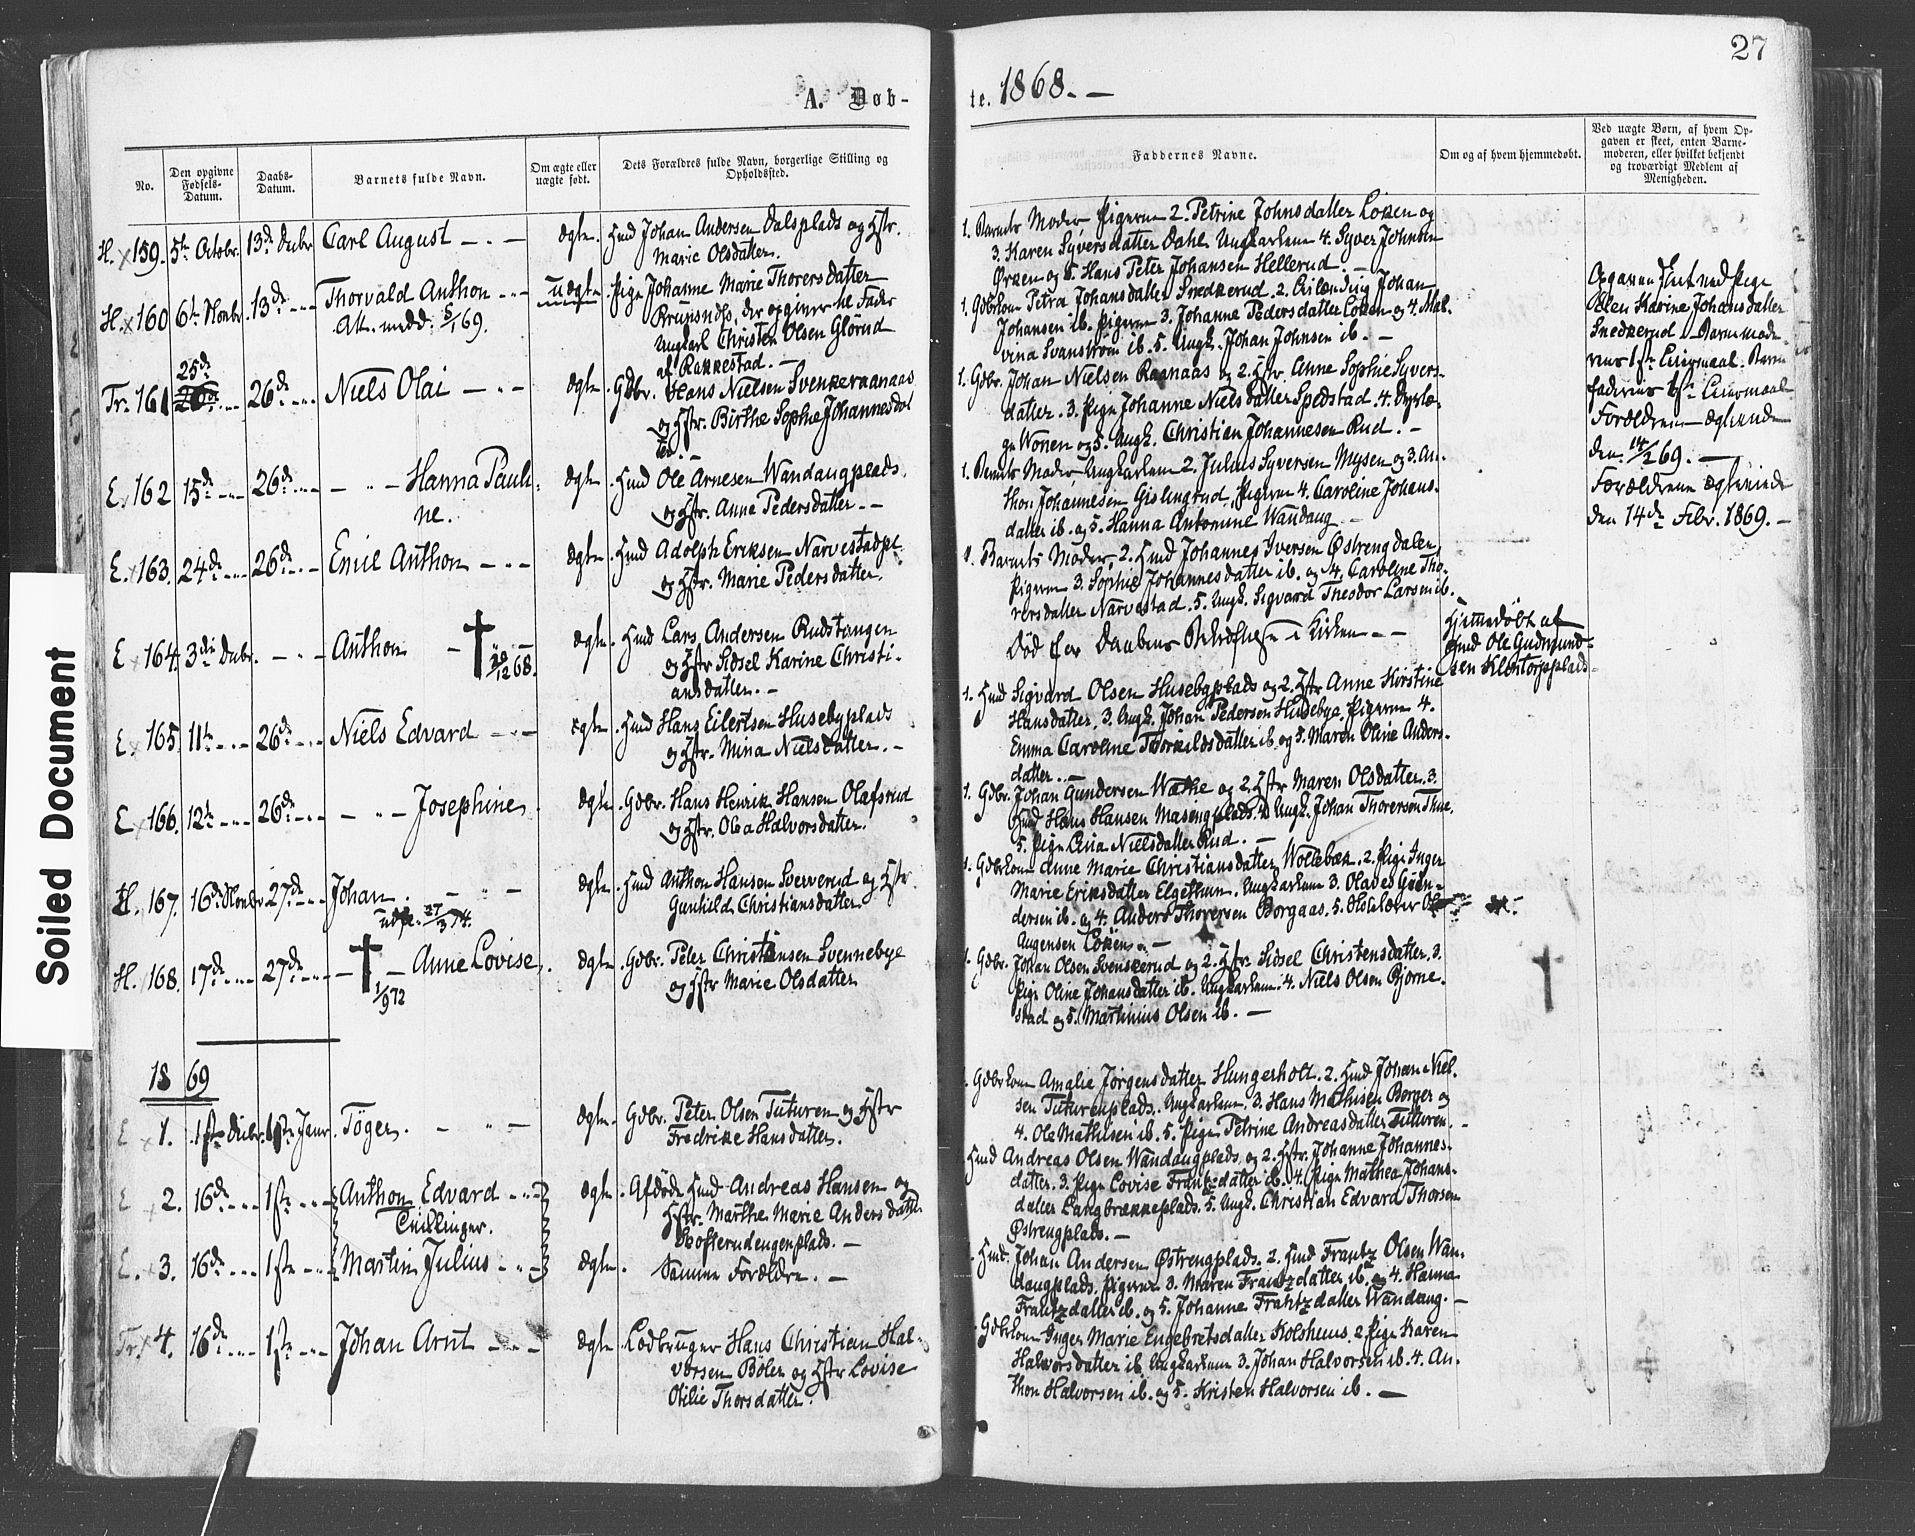 27
A. Døb-
te. 1868. —
No.
Den opgivne Fødsels-Datum.
Daabs-Datum.
Barnets fulde Navn.
Om ægte eller uægte født.
Dets Forældres fulde Navn, borgerlige Stilling og Opholdssted.
Faddernes Navne.
Om og af hvem hjemmedøbt.
Ved uægte Børn, af hvem Op-
gaven er skeet, enten Barne-
moderen, eller hvilket bekjendt
og troværdigt Medlem af
Menigheden.
H. x 159. 5te Octobr. 13de Decbr. Carl August — ægte. Hmd Johan Andersen Dalsplads og Hstr.
Marie Olsdatter.
1. Barnets Moder, Pigerne 2. Petrine Johnsdatter Løken og
3. Karen Syversdatter Dahl. Ungkarlene 4. Syver Johnsen
Ørken og 5. Hans Peter Johansen Hellerud. —
H. x 160 6te Novbr. 13de Thorvald Anthon uægte. Pige Johanne Marie Thorersdatter
Att. medd: 5/1 69.
Brunsnds. der opgiver til Fader
Ungkarl Christen Olsen Glørud
af Rakkestad. —
1. Gdbrkone Petra Johansdatter Snedkerud. 2. Johan
Johansen ib. Pigerne 3. Johanne Pedersdatter Løken og 4. Mal-
vina Svanstrøm ib. 5. Ungk. Johan Johnsen ib. —
Opgaven skeet ved Pige
Ellen Karine Johansdatter
Snedkerud. Barnemode-
rens 1ste Leiermaal. Barne-
faderens 1ste Leiermaal
Forældrene egteviede
den 14/2 69. —
Forældrene egteviede
den 14de Febr. 1869. —
Tr. 161 25de 26de Niels Olai — ægte. Gdbr. Hans Nielsen Svenkeraanaas
og Hstr. Birthe Sophie Johannesdat
ter. —
1. Gdbr. Johan Nielsen Raanaas og 2. Hstr. Anne Sophie Syvers-
datter. 3. Pige Johanne Nielsdatter Spedstad. 4. Dyrlæ-
ge Wonen og 5. Ungk. Christian Johannesen Rud. —
E. x 162 15de 26de — Hanna Pauli-
ne.
ægte. Hmd Ole Arnesen Wandaugplads,
og Hstr. Anne Pedersdatter. —
1. Barnets Moder, Ungkarlene 2. Julius Syversen Mysen og 3. An-
thon Johannesen Gislingrud, Pigerne 4. Caroline Johans-
datter ib. og 5. Hanna Antonine Wandaug —
E. x 163. 24de 26de Emil Anthon — ægte. Hmd Adolph Eriksen Narvestadpl.
og Hstr. Marie Pedersdatter.
1. Barnets Moder, 2. Hmd Johannes Iversen Østrengdalen,
Pigerne 3. Sophie Johannesdatter ib. og 4. Caroline Tho-
rersdatter Narvestad. 5. Ungk. Sigvard Theodor Larsen ib.
E x 164. 3die Decbr. — Anthon — † 20/12 68. ægte. Hmd Lars Andersen Rudstangen
og Hstr Sidsel Karine Christi-
ansdatter. —
Død før Daabens Bekræftelse i Kirken —
Hjemmedøbt af
Hmd Ole Gudmund-
sen Kløntorpplads
E x 165. 11te 26de Niels Edvard — ægte. Hmd Hans Eilertsen Husebyplads
og Hstr. Mina Nielsdatter. —
1. Hmd Sigvard Olsen Husebyplads og 2. Hstr Anne Kirstine
Hansdatter, 3. Ungk. Johan Pedersen Husebye, Pigerne 4.
Emma Caroline Thorkildsdatter ib. og 5. Maren Oline Anders-
datter. —
E x 166. 12te 26de — Josephine. ægte. Gdbr. Hans Henrik Hansen Olafsrud
og Hstr. Olea Halvorsdatter.
1. Gdbr. Johan Gundersen Wæthe og 2. Hstr Maren Olsdatter. 3.
Hmd Hans Hansen Masengplads. 4 Ungk. Johan Thorersen Thue.
5. Pige Lina Nielsdatter Rud. —
H. 167. 16de Novbr 27de Johan. — ægte. Hmd Anthon Hansen Sververud og Hstr.
udfl. 27/3 74.
Gunhild Christiansdatter
1. Gdbrkone Anne Marie Christiansdatter Wollebæk. 2. Pige Inger
Marie Eriksdatter Elgethun. Ungkarlene 3. Olaves Gun-
dersen ib. og 4. Anders Thoresen Borgaas. 5.
Augensen Løken. —
H. x 168. 17de 27de — † — Anne Lovise. ægte. Gdbr. Peter Christensen Svennebye
1/9 72
og Hstr Marie Olsdatter
1. Gdbr. Johan Olsen Svenskerud og 2. Hstr Sidsel Christensdatter. 3.
Pige Oline Johansdatter ib. Ungkarlene. 4. Niels Olsen Bjørne-
stad og 5. Martinius Olsen ib. —
†
1869
E x 1. 1ste Decbr. 1ste Janr. Töger. — ægte. Gdbr. Peter Olsen Tuturen og Hstr
Fredrikke Hansdatter.
1. Gdbrkone Amalie Jørgensdatter Hungerholt. 2. Hmd Johan Niel-
sen Tuturenplads. Ungkarlene. 3. Hans Mathisen Berger og
4. Ole Mathisen ib. 5. Pige Petrine Andreasdatter Tuturen.
E x 2. 16de 1ste Anthon Edvard ægte. Afdøde Hmd Andreas Hansen og
Tvillinger.
Hstr. Marthe Marie Andersdatter
Kofterudeugenplads. —
Hmd Andreas Olsen Wandaugplads og 2. Hstr. Johanne Johannes-
datter. 3. Pige Lovise Frantzdatter ib. 4. Pige Mathea Johans-
datter Langbrækkeplads. 5. Ungk. Christian Edvard Thorsen
Østrengplads. —
E. x 3. 16de 1ste Martin Julius ægte. Samme Forældre. —
Hmd. Johan Andersen Østrengplads. 2. Hmd Frantz Olsen Wan-
daugplads. Pigerne 3. Maren Frantzdatter ib. og 4. Hanna
Frantzdatter ib. og 5. Johanne Frantzdatter Wandaug. —
Tr. x 4. 16de 1ste Johan Arnt — ægte. Lodbruger Hans Christian Hal-
vorsen Bölen og Hstr Lovise
Otilie Thorsdatter.
Gdbrkone Inger Marie Engebretsdatter Kolshuus. 2. Pige Karen
Halvorsdatter ib. Ungkarlene 3. Johan Halvorsen ib. 4. An-
thon Halvorsen ib. og 5. Kristen Halvorsen ib. —
Soiled Document